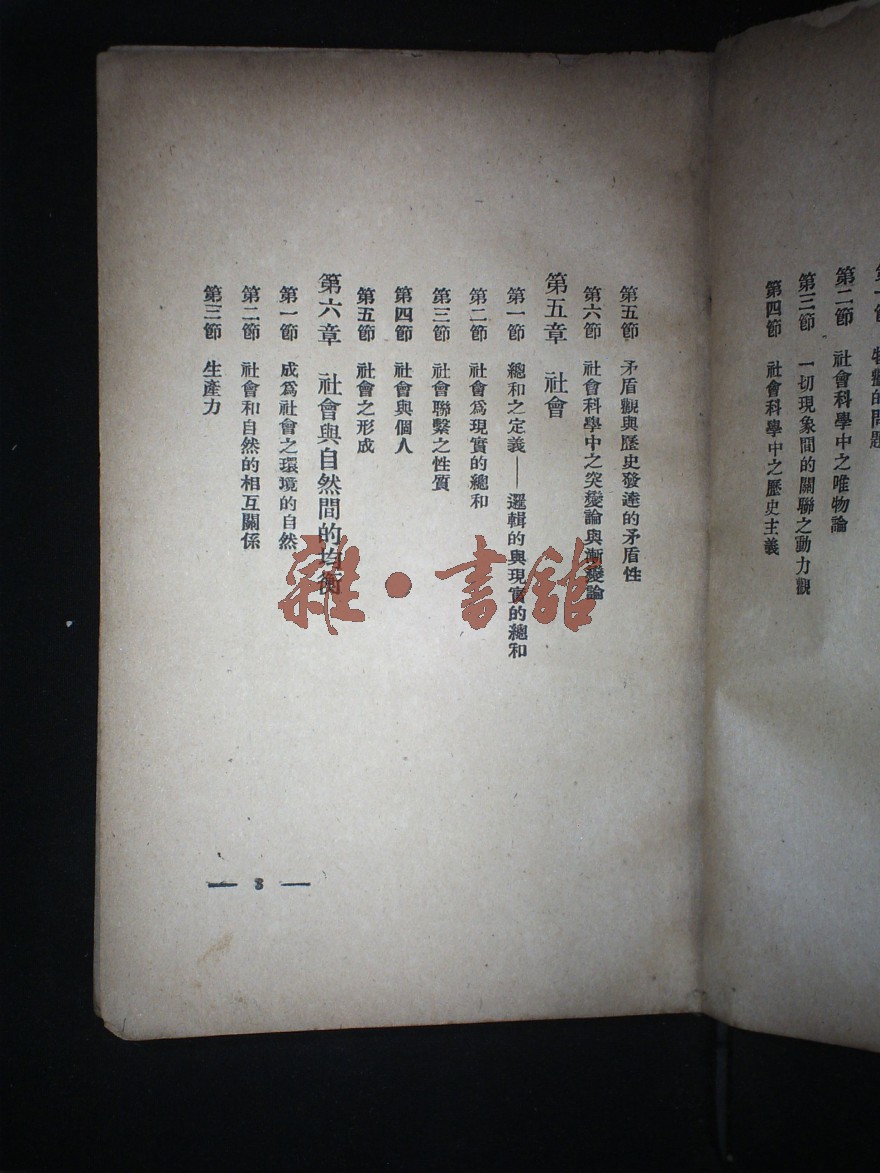 的問題
第二節 社會科學中之唯物論
第三節 一切現象間的關聯之動力觀
第四節 社會科學中之歷史主義
第五節 矛盾觀與歷史發達的矛盾性
第六節 社會科學中之突變論與漸變論
第五章 社會
第一節 總和之定義——邏輯的與現實的總和
第二節 社會爲現實的總和
第三節 社會聯繫之性質
第四節 社會與個人
第五節 社會之形成
第六章 社會與自然間的均衡
第一節 成爲社會之環境的自然
第二節 社會和自然的相互關係
第三節 生產力
— 3 —
雜·書館